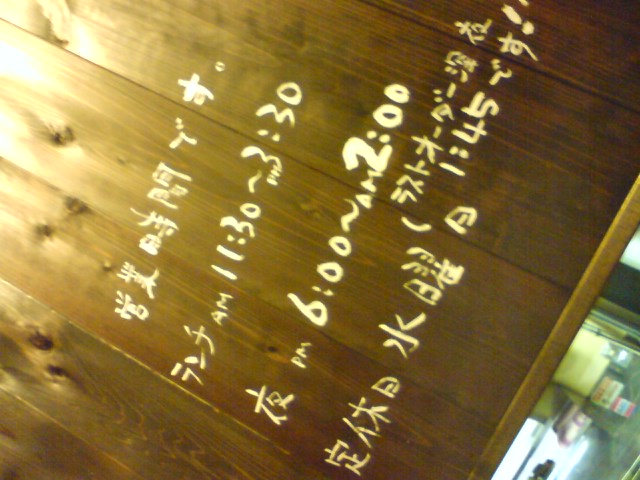 営業時間です。
ランチ AM 11:30~PM3:30
夜 PM 6:00~AM2:00
(ラストオーダー深夜
1:45です!!
定休日 水曜日